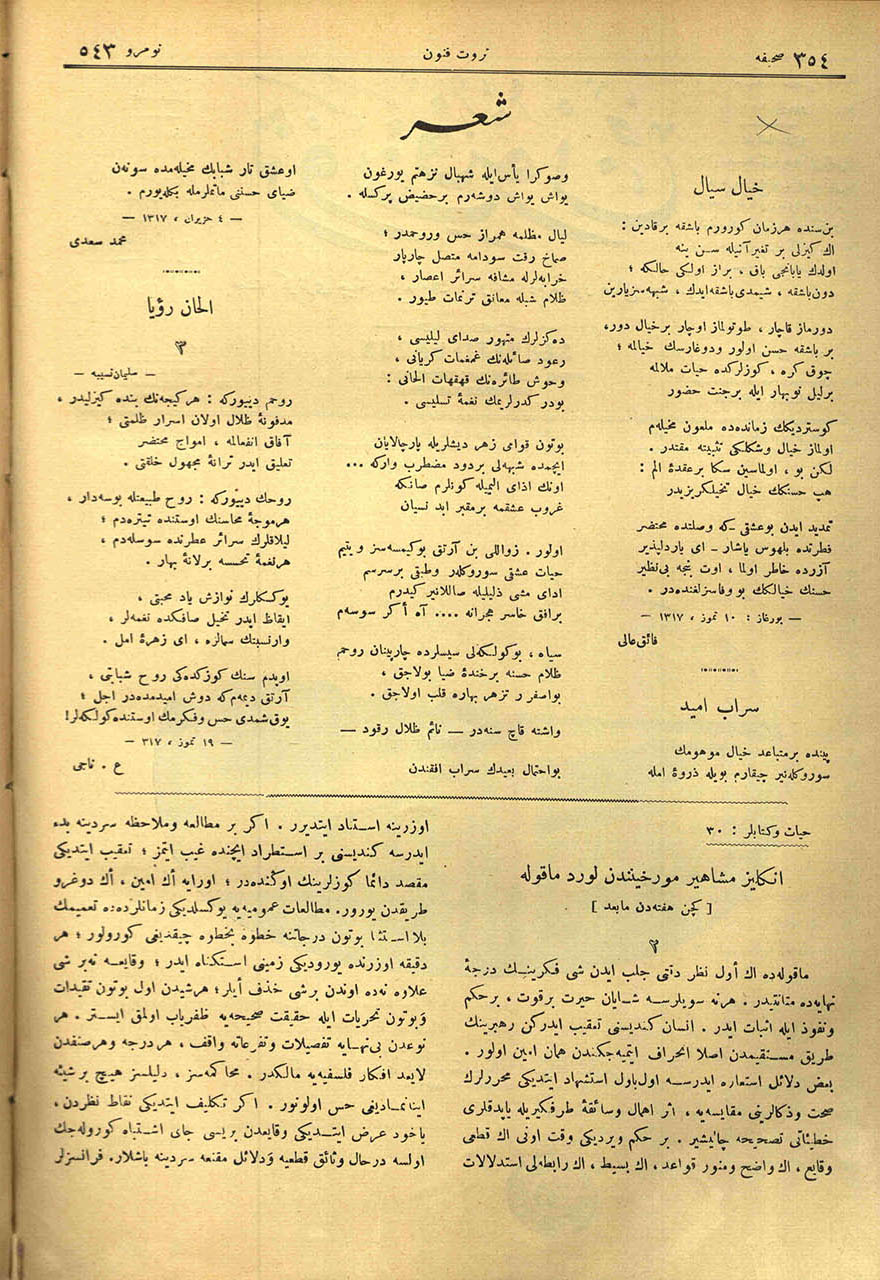 صحیفه ٣٥٤
ثروت فنون
نومرو ٥٤٣
شعر
خیال سیال
بن سنده هرزمان کورورم باشقه برقادین :
اك کیزلی بر تغیر آنیله سن ینه
اولدك یابانجی باق ، براز اولکی حالکه ؛
دون باشقه ، شیمدی باشقه ایدك ، شبهه سز یارین
دورماز قاچار ، طوتولماز اوچار برخیال دور،
بر باشقه حسن اولور ودوغارسك خیالمه ؛
چوق کره ، کوزلرکده حیات ملالمه
برلیل نوبهار ایله برجنت حضور
کوستردیکك زمانده ده ملعون مخیله م
اولماز خیال وشکلکی تثبیته مقتدر .
لکن بو ، اولماسین سکا برعقدۀ الم :
هپ حسنکك خیال تخیلکریزیدر
تمدید ایدن بوعشقی ـ که وصلتده محتضر
فطرتده بلهوس یاشار ـ ای یاردلپذیر
آزرده خاطر اولما ، اوت نجه بی نظیر
حسنك خیالکك بو وفاسزلغنده در .
— بورغاز : ١٠ تموز ، ١٣١٧ —
فائق عالی
سراب امید
پینده برمتباعد خیال موهومك
سوروکله نیر چیقارم بویله ذروۀ امله
وصوکرا یأس ایله شهبال نزهتم یورغون
یواش یواش دوشه رم برحضیض پرکسله .
لیال مظلمه همراز حس وروحمدر ؛
صماخ رقت سودامه متصل چارپار
خرابه لرله مشافه سرائر اعصار ،
ظلام شبله معانق ترنمات طیور .
ده کزلرك متهور صدای لیلیسی ،
رعود صائله نك غمغمات کریانی ،
وحوش طائره نك قهقهات الحانی :
بودر کدرلریمك نغمۀ تسلیسی .
بوتون قوای زهر دیشلریله پارچالایان
ایچمده شبهه لی بردود مضطرب وارکه ...
اونك اذای الیمیله کونلرم صانکه
غروب عشقمه برمقبر ابد نسیان
اولور . زواللی بن آرتق بوکیمسه سز و یتیم
حیات عشقی سوروکلر وطبقی برسرسم
ادای مشی ذلیلیله صاللانیر کیدرم
براقق خاسر هجرانه .... آه اکر سوسه م
سیاه ، بوکولکه لی سیسلرده چارپینان روحم
ظلام حسنه برخندۀ ضیا بولاجق ،
بواصفر ر تزهر بهاره قلب اولاجق .
واشته قاچ سنه در — نائم ظلال رقود —
بواحتمال بعیدك سراب افقندن
اوعشق تار شبابك مخیله مده سونه ن
ضیای حسننی ماتملرمله بکله یورم .
— ٤ حزیران ، ١٣١٧ —
محمد سعدی
الحان رؤیا
٣
— سلیمان نسیبه —
روحم دییورکه : هرکیجه نك بنده کیزلیدر ،
مدفونۀ ظلال اولان اسرار ظلمتی ؛
آفاق انفعالمه ، امواج محتضر
تعلیق ایدر ترانۀ مجهول خلقتی .
روحك دییورکه : روح طبیعتله بوسه دار ،
هرموجۀ محاسنك اوستنده تیتره دم ؛
لیلاقلرك سرائر عطرنده سوسله دم ،
هرنغمۀ تحسسه برلانۀ بهار .
یوکسکلرك نوازش یاد محبتی ،
ایقاظ ایدر تخیل صافکده نغمه لر ،
وارنسینك سمالزه ، ای زهرۀ امل .
اویدم سنك کوزکده کی روح شبابتی ،
آرتق دیمه م که دوش امیدمده در اجل ؛
یوق شمدی حس وفکرمك اوستنده کولکه لر!
— ١٩ تموز ، ٣١٧ —
ع . ناجی
حیات وکتابلر : ٣٠
انکلیز مشاهیر مورخینندن لورد ماقوله
[ کچن هفته دن مابعد ]
٢
ماقوله ده اك أول نظر دقتی جلب ایدن شی فکرینك درجۀ
نهایه ده متانتیدر . هرنه سویلرسه شایان حیرت برقوت ، برحکم
ونفوذ ایله اثبات ایدر . انسان کندیسنی تعقیب ایدرکن رهبرینك
طریق مستقیمدن اصلا انحراف ایتمیه جکندن همان امین اولور .
بعض دلائل استعاره ایدرسه اول باول استشهاد ایتدیکی محررلرك
صحت وذکالرینی مقایسه یه ، اثر اهمال وسائقۀ طرفکیریله یاپدقلری
خطیئاتی تصحیحه چالیشیر . بر حکم ویردیکی وقت اونی اك قطعی
وقایع ، اك واضح ومنور قواعد ، اك بسیط ، اك رابطه لی استدلالات
اوزرینه استناد ایتدیرر . اکر بر مطالعه وملاحظه سردینه بدء
ایدرسه کندیسنی بر استطراد ایچنده غیب ایتمز ؛ تعقیب ایتدیکی
مقصد دائما کوزلرینك اوکنده در ؛ اورایه اك امین ، اك دوغرو
طریقدن یورور . مطالعات عمومیه یه یوکسلدیکی زمانلرده ده تعمیمك
بلااستثنا بوتون درجاتنه خطوه بخطوه چیقدیغی کورولور ؛ هر
دقیقه اوزرنده یورودیکی زمینی استکناه ایدر ؛ وقایعه نه بر شی
علاوه نه ده اوندن برشی حذف أیلر؛ هرشیدن اول بوتون تقیدات
وبوتون تحریات ایله حقیقت صحیحه یه ظفریاب اولمق ایستر . هر
نوعدن بی نهایه تفصیلات وتفرعاته واقف ، هر درجه وهرصنفدن
لایعد افکار فلسفیه یه مالکدر. محاکمه سز ، دلیلسز هیچ برشیئه
اینانمادیغی حس اولونور . اکر تکلیف ایتدیکی نقاط نظردن،
یاخود عرض ایتدیکی وقایعدن بریسی جای اشتباه کوروله جك
اولسه درحال وثائق قطعیه ودلائل مقنعه سردینه باشلار. فرانسزلر